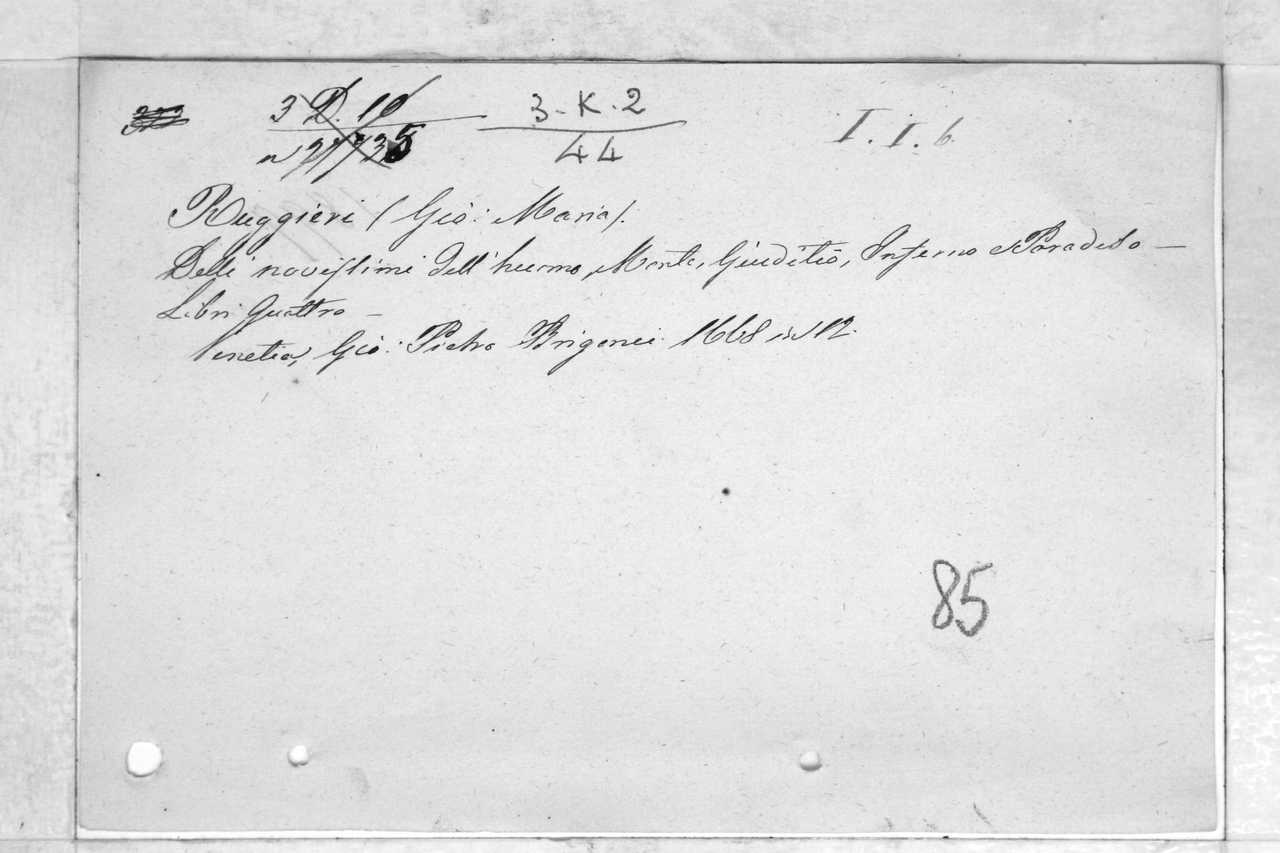 3 D. 10 3-K-2 I.I.6.
44
Ruggieri (Gio: Maria).
Delli novissimi dell'huomo, Morte, Giuditio, Inferno e Paradiso —
Libri Quattro —
Venetia, Gio: Pietro Brigonci 1668 in 12.
85